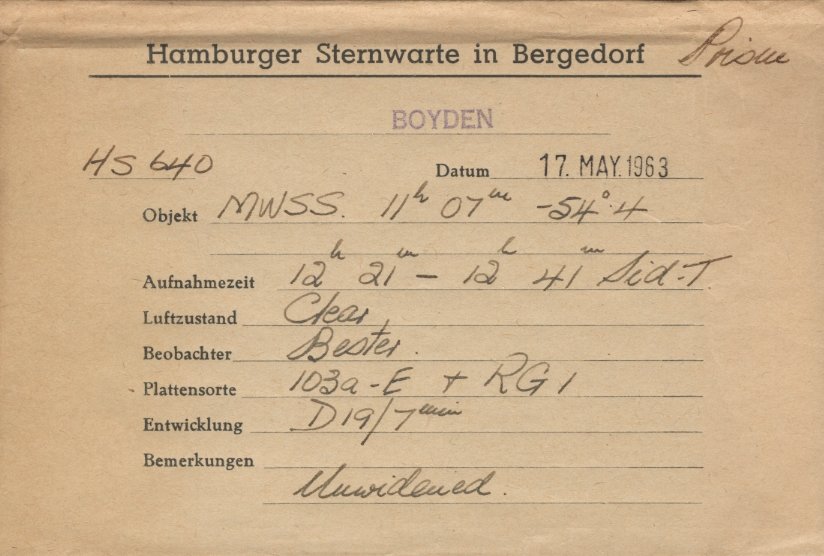 Hamburger Sternwarte in Bergedorf Prism
BOYDEN
HS 640 Datum 17. MAY. 1963
Objekt MWSS. 11h 07m -54°.4
Aufnahmezeit 12h 21m – 12h 41m Sid-T.
Luftzustand Clear
Beobachter Bester.
Plattensorte 103a-E + RG1
Entwicklung D19/7min
Bemerkungen
Unwidened.